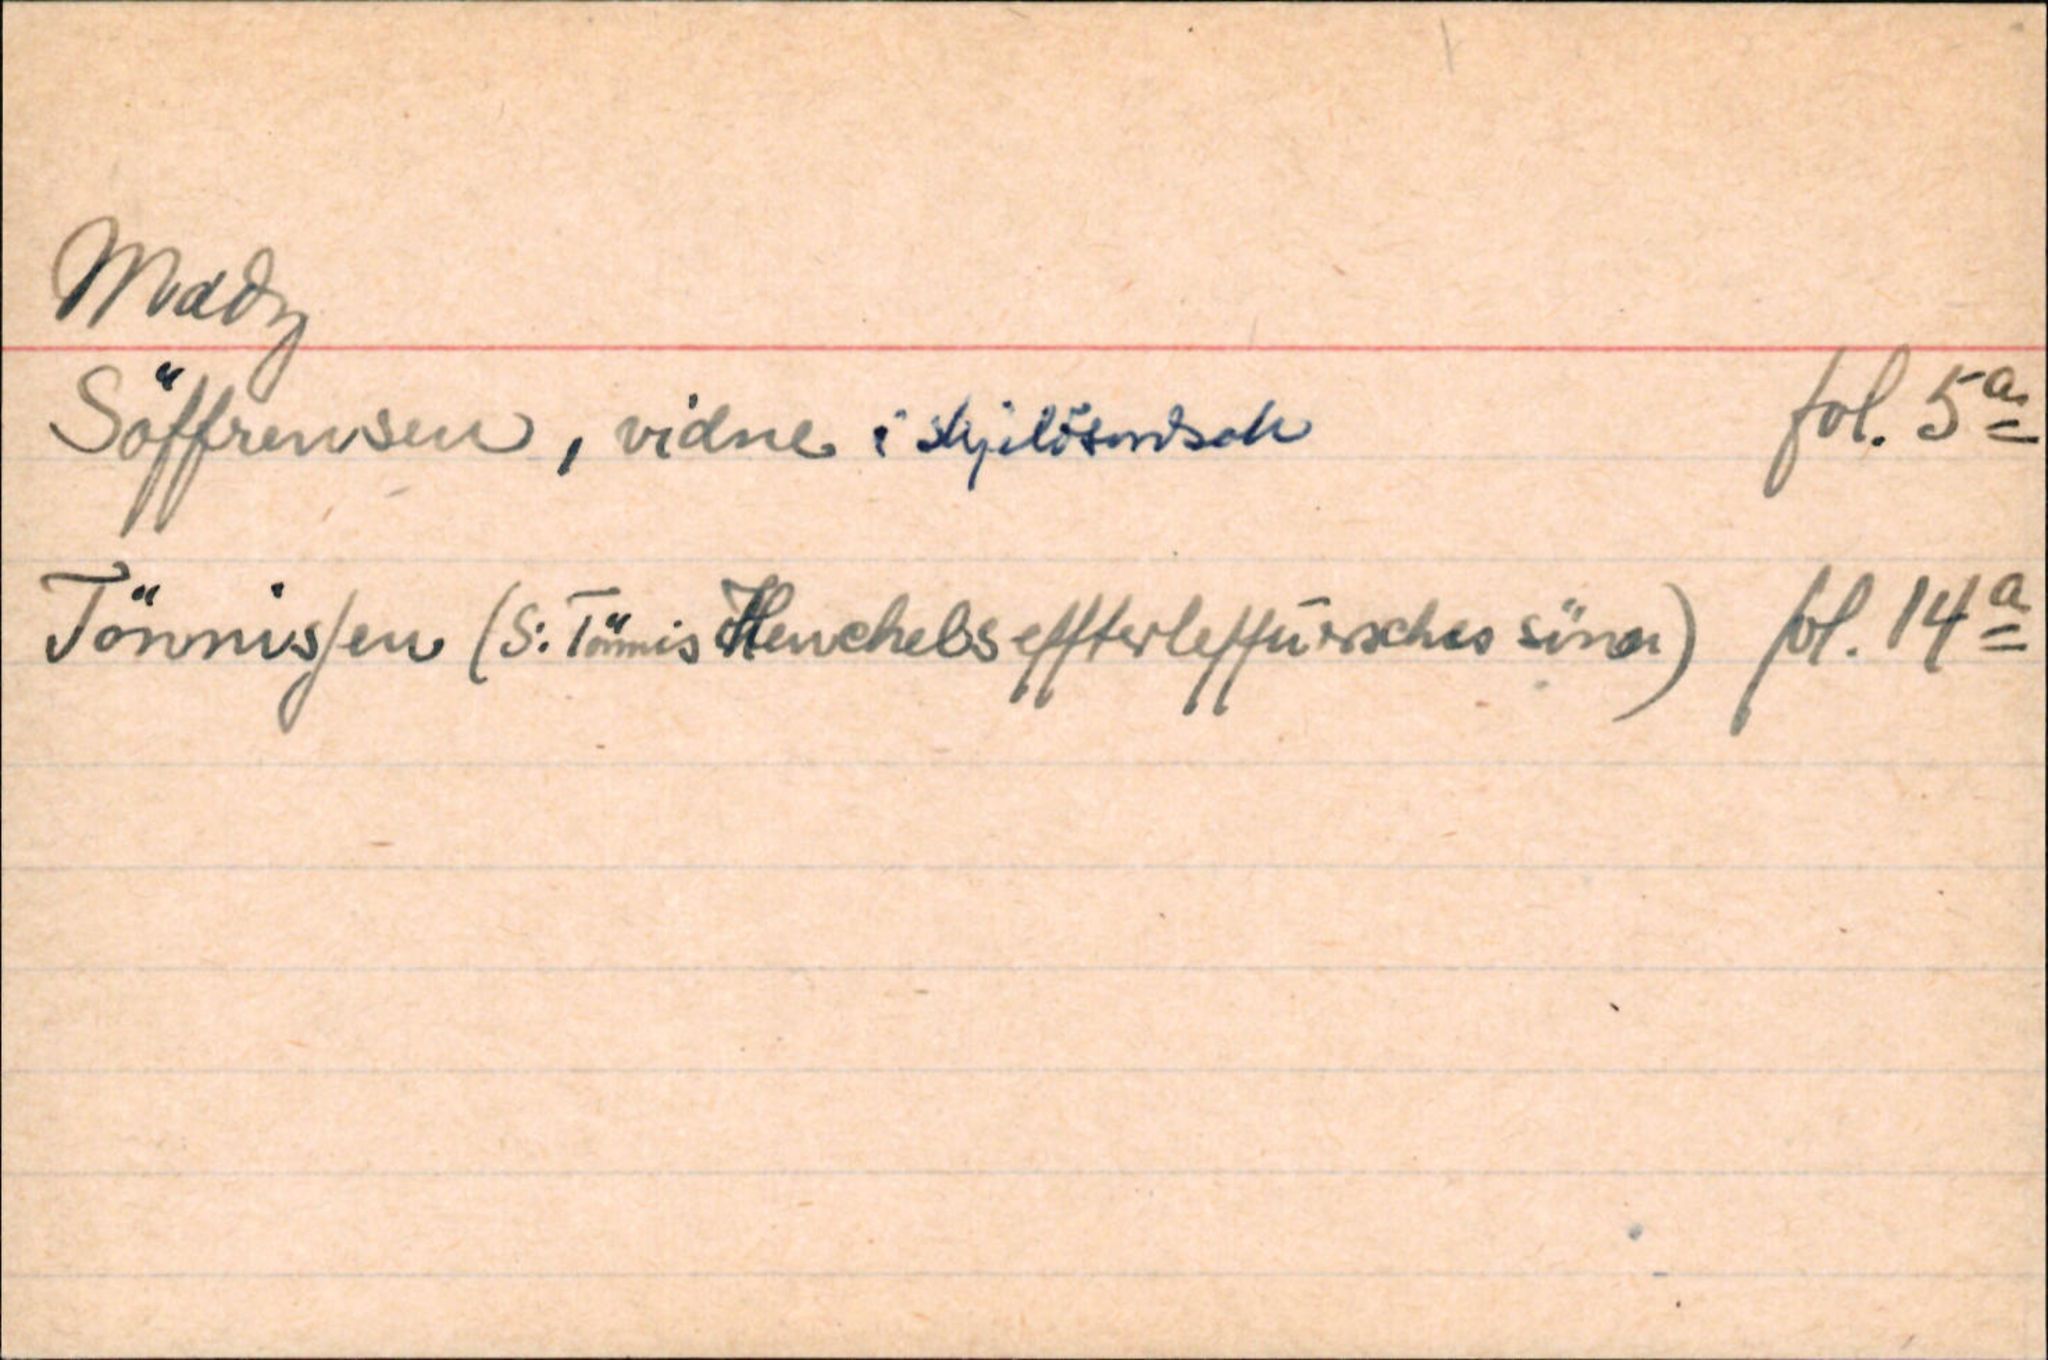 Madz
Söffrensen, vidne i skjelösmdsak fol. 5a
Tönnissen (S: Tönnis Henchels effterleffuersches söner) fol. 14a